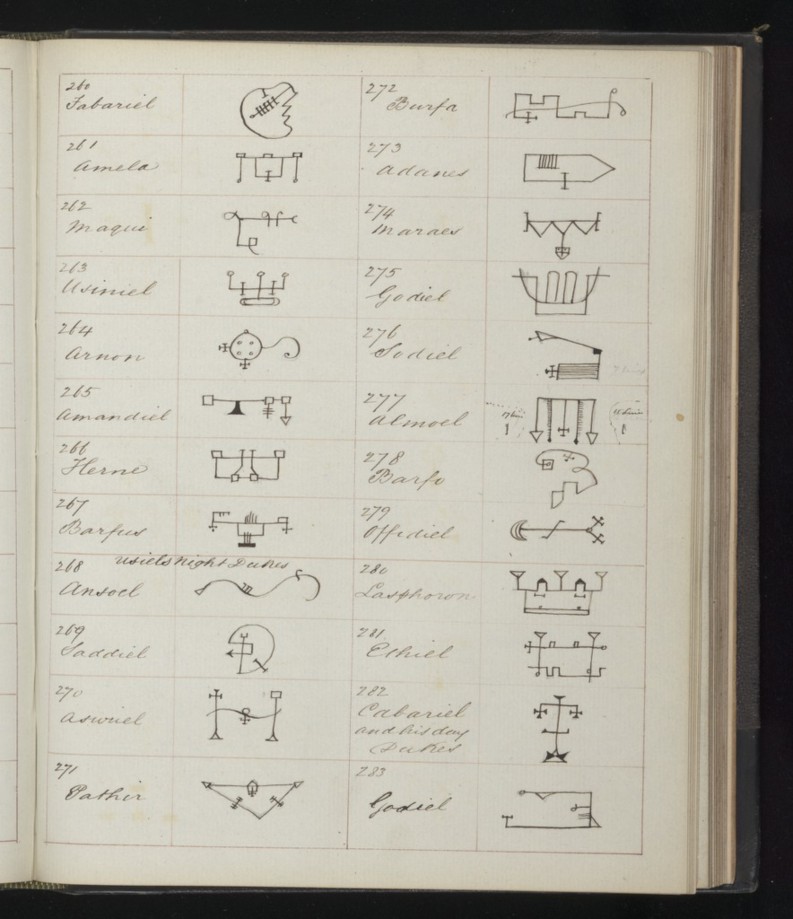 260
Fabariel
261
Amela
262
Maqui
263
Usiniel
264
Arnon
265
Amandiel
266
Herne
267
Barfus
Usiels Night Dukes
268
Ansoel
269
Saddiel
270
Aswriel
271
Pathir
272
Burfa
273
Adanes
274
Maraes
275
Godiel
276
Sodiel
277
Almoel
278
Barfo
279
Offidiel
280
Lasphoron
281
Ethiel
282
Cabariel
and his day
Dukes
283
Godiel